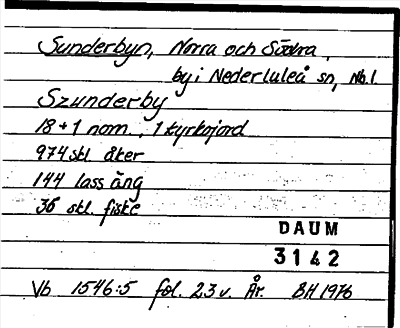 Sunderbyn, Norra och Södra,
by i Nederluleå sn, Nb.l.
Szunderby
18 + 1 nom., 1 kyrkojord
974 skl. åker
144 lass äng
36 skl. fiske
DAUM
3142
Vb 1546:5 fol. 23 v. År. BH 1976